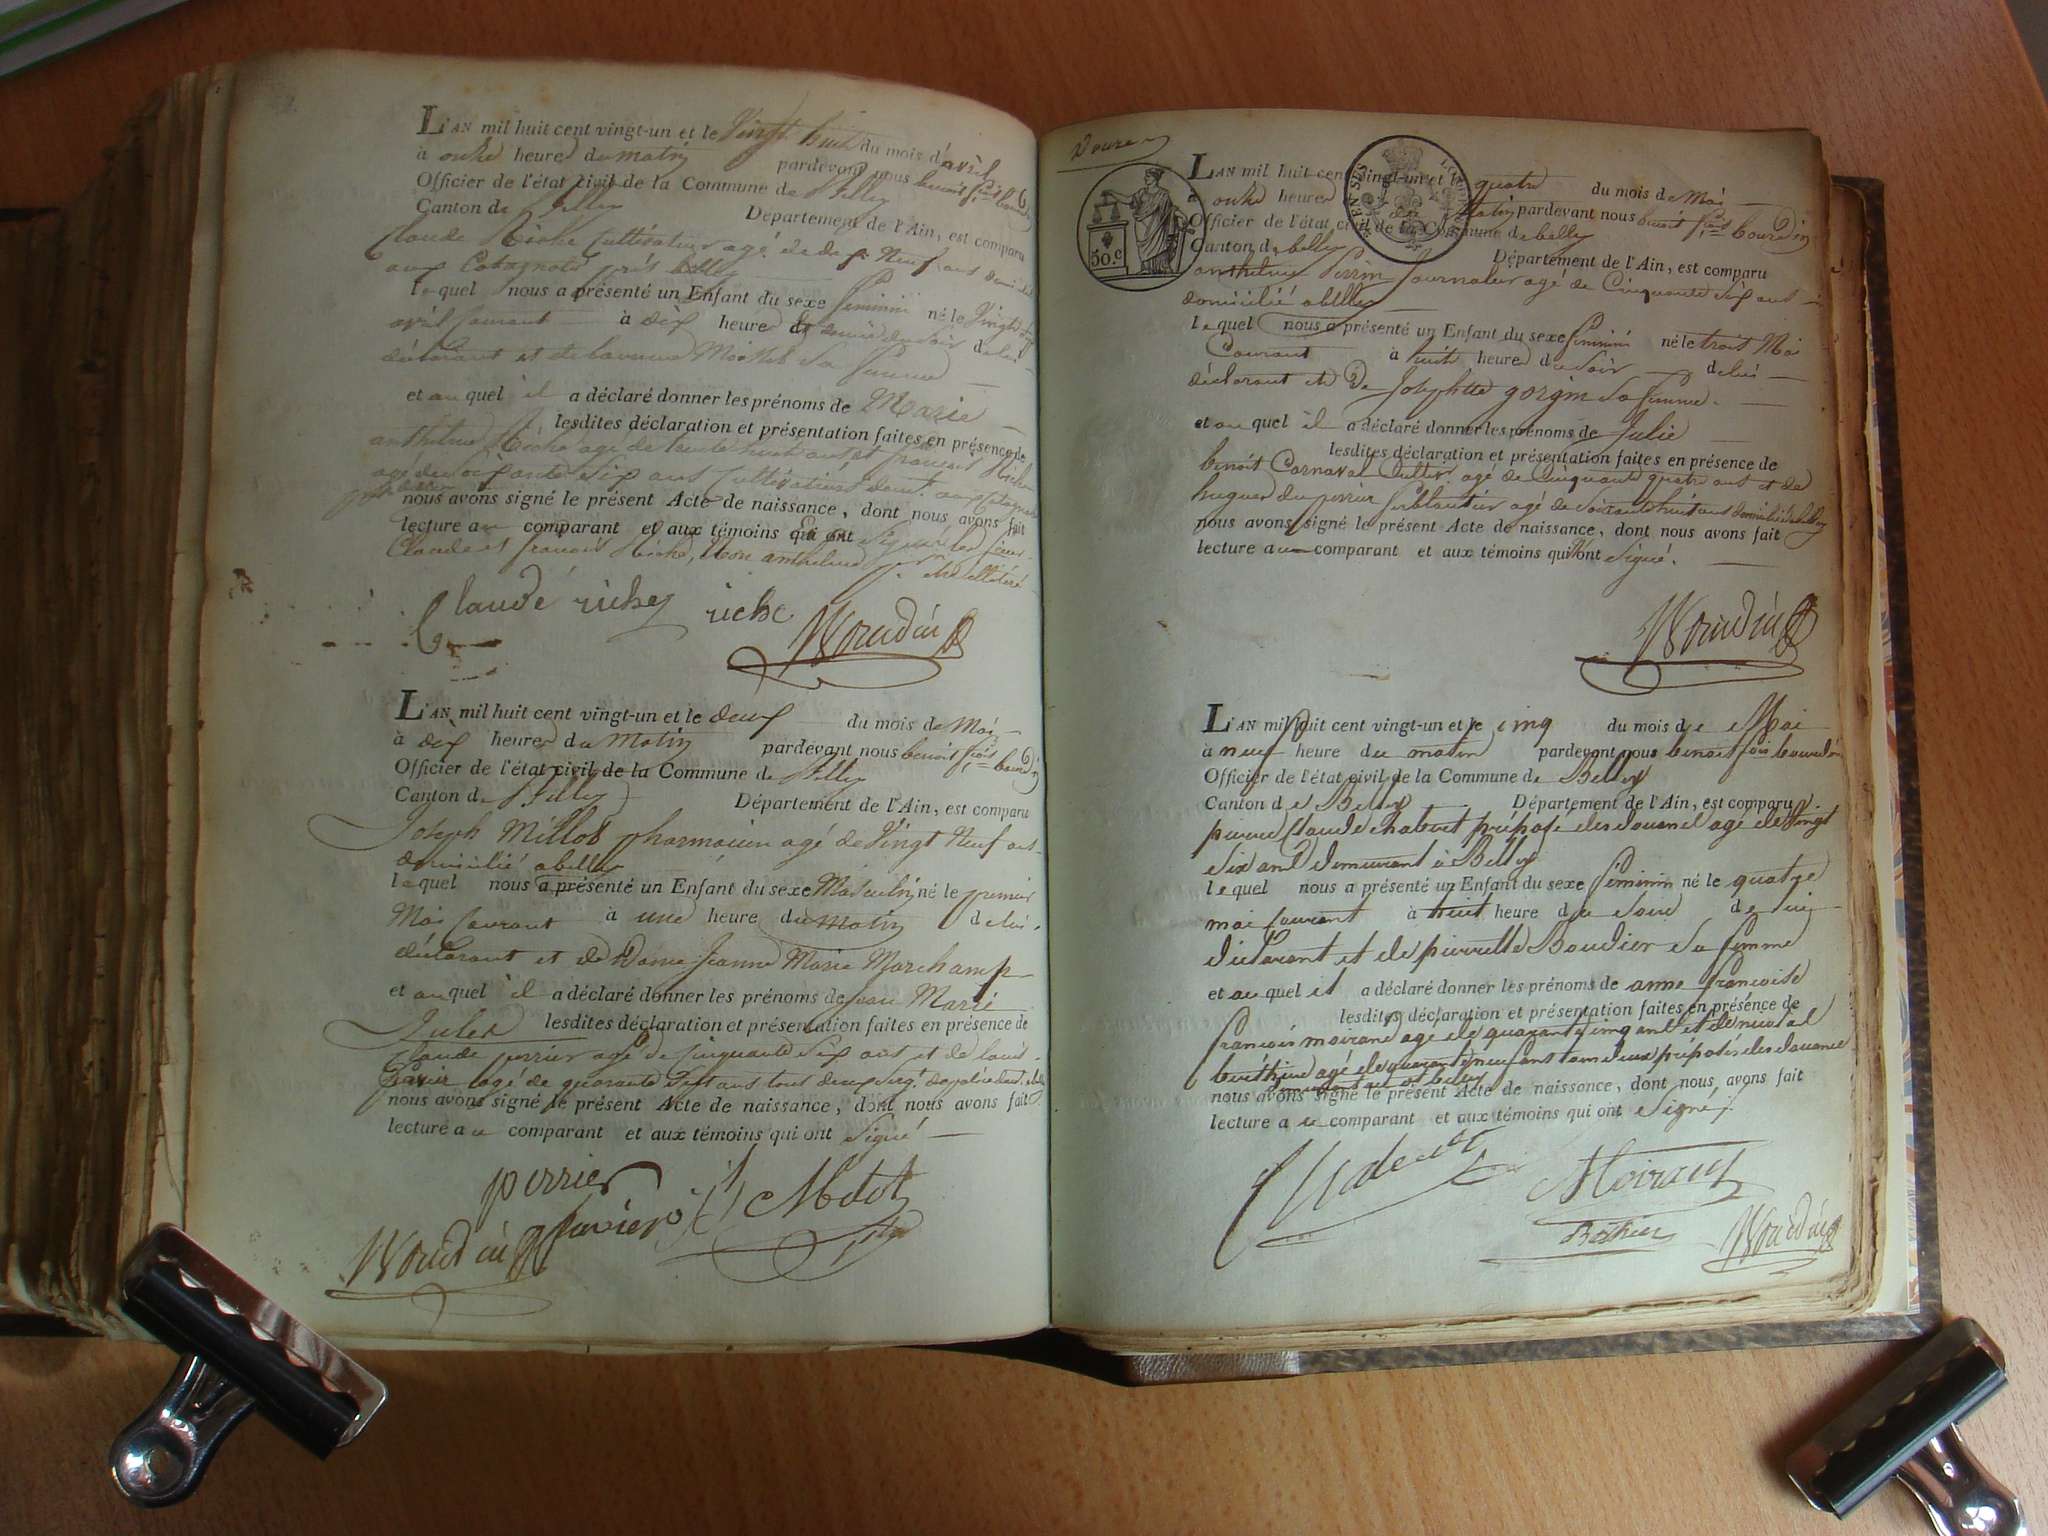 L'AN mil huit cent vingt-un et le Vingt huit du mois d'avril
à onze heures du matin pardevant nous benoit fçois bourdin
Officier de l'état civil de la Commune de Belley
Canton de Belley Département de l'Ain, est comparu
Claude Riche Cultivateur agé de Neuf ans
aux Catagnols près belley
lequel nous a présenté un Enfant du sexe feminin né le Vingt
avril courant à dix heures du soir de lui
déclarant et de sa femme
et auquel il a déclaré donner les prénoms de Marie
lesdites déclaration et présentation faites en présence de
anthelme Riche agé de trente huit ans et françois Riche
agé de soixante six ans Cultivateurs
nous avons signé le présent Acte de naissance, dont nous avons fait
lecture au comparant et aux témoins qui ont signé les sieurs
Claude et françois Riche, Non anthelme illitéré
Claude riche riche Bourdin
L'AN mil huit cent vingt-un et le deux du mois de Mai
à dix heures du Matin pardevant nous benoit fçois bourdin
Officier de l'état civil de la Commune de Belley
Canton de Belley Département de l'Ain, est comparu
Joseph Millot pharmacien agé de Vingt Neuf ans
domicilié a belley
lequel nous a présenté un Enfant du sexe Masculin né le premier
Mai Courant à une heure du Matin de lui
déclarant et de Dame Jeanne Marie Marchamp
et auquel il a déclaré donner les prénoms de Jean Marie
Jules lesdites déclaration et présentation faites en présence de
Claude perrier agé de Cinquante Six ans et de louis
agé de quarante Sept ans tous deux
nous avons signé le présent Acte de naissance, dont nous avons fait
lecture au comparant et aux témoins qui ont Signé
perrier
Bourdin
Douze
50.c
L'AN mil huit cent vingt-un et le quatre du mois de Mai
à onze heures du Matin pardevant nous benoit fçois bourdin
Officier de l'état civil de la Commune de belley
Canton de belley Département de l'Ain, est comparu
anthelme Perrin Journalier agé de Cinquante Six ans
domicilié a belley
lequel nous a présenté un Enfant du sexe feminin né le trois Mai
Courant à huit heures du soir de lui
déclarant et de Josephtte gorgin sa femme
et auquel il a déclaré donner les prénoms de Julie
lesdites déclaration et présentation faites en présence de
benoit Carnaval Cultiv. agé de Cinquante quatre ans et de
hugues duperrier ferblantier agé de soixante huit ans domiciliés a belley
nous avons signé le présent Acte de naissance, dont nous avons fait
lecture au comparant et aux témoins qui n'ont Signé.
Bourdin
L'AN mil huit cent vingt-un et le cinq du mois de Mai
à neuf heure du matin pardevant nous benoit fçois bourdin
Officier de l'état civil de la Commune de Belley
Canton de Belley Département de l'Ain, est comparu
pierre Claude préposé des douanes agé de Vingt
six ans demeurant à Belley
lequel nous a présenté un Enfant du sexe feminin né le quatre
mai courant à huit heure du soir de lui
déclarant et de pierrette Boudier sa femme
et auquel il a déclaré donner les prénoms de anne francoise
lesdites déclaration et présentation faites en présence de
francois moirand agé de quarante cinq ans et de
agé de quarante neuf ans tous deux préposés des douanes
demeurant a belley
nous avons signé le présent Acte de naissance, dont nous avons fait
lecture au comparant et aux témoins qui ont Signé.
Moirant
Bourdin